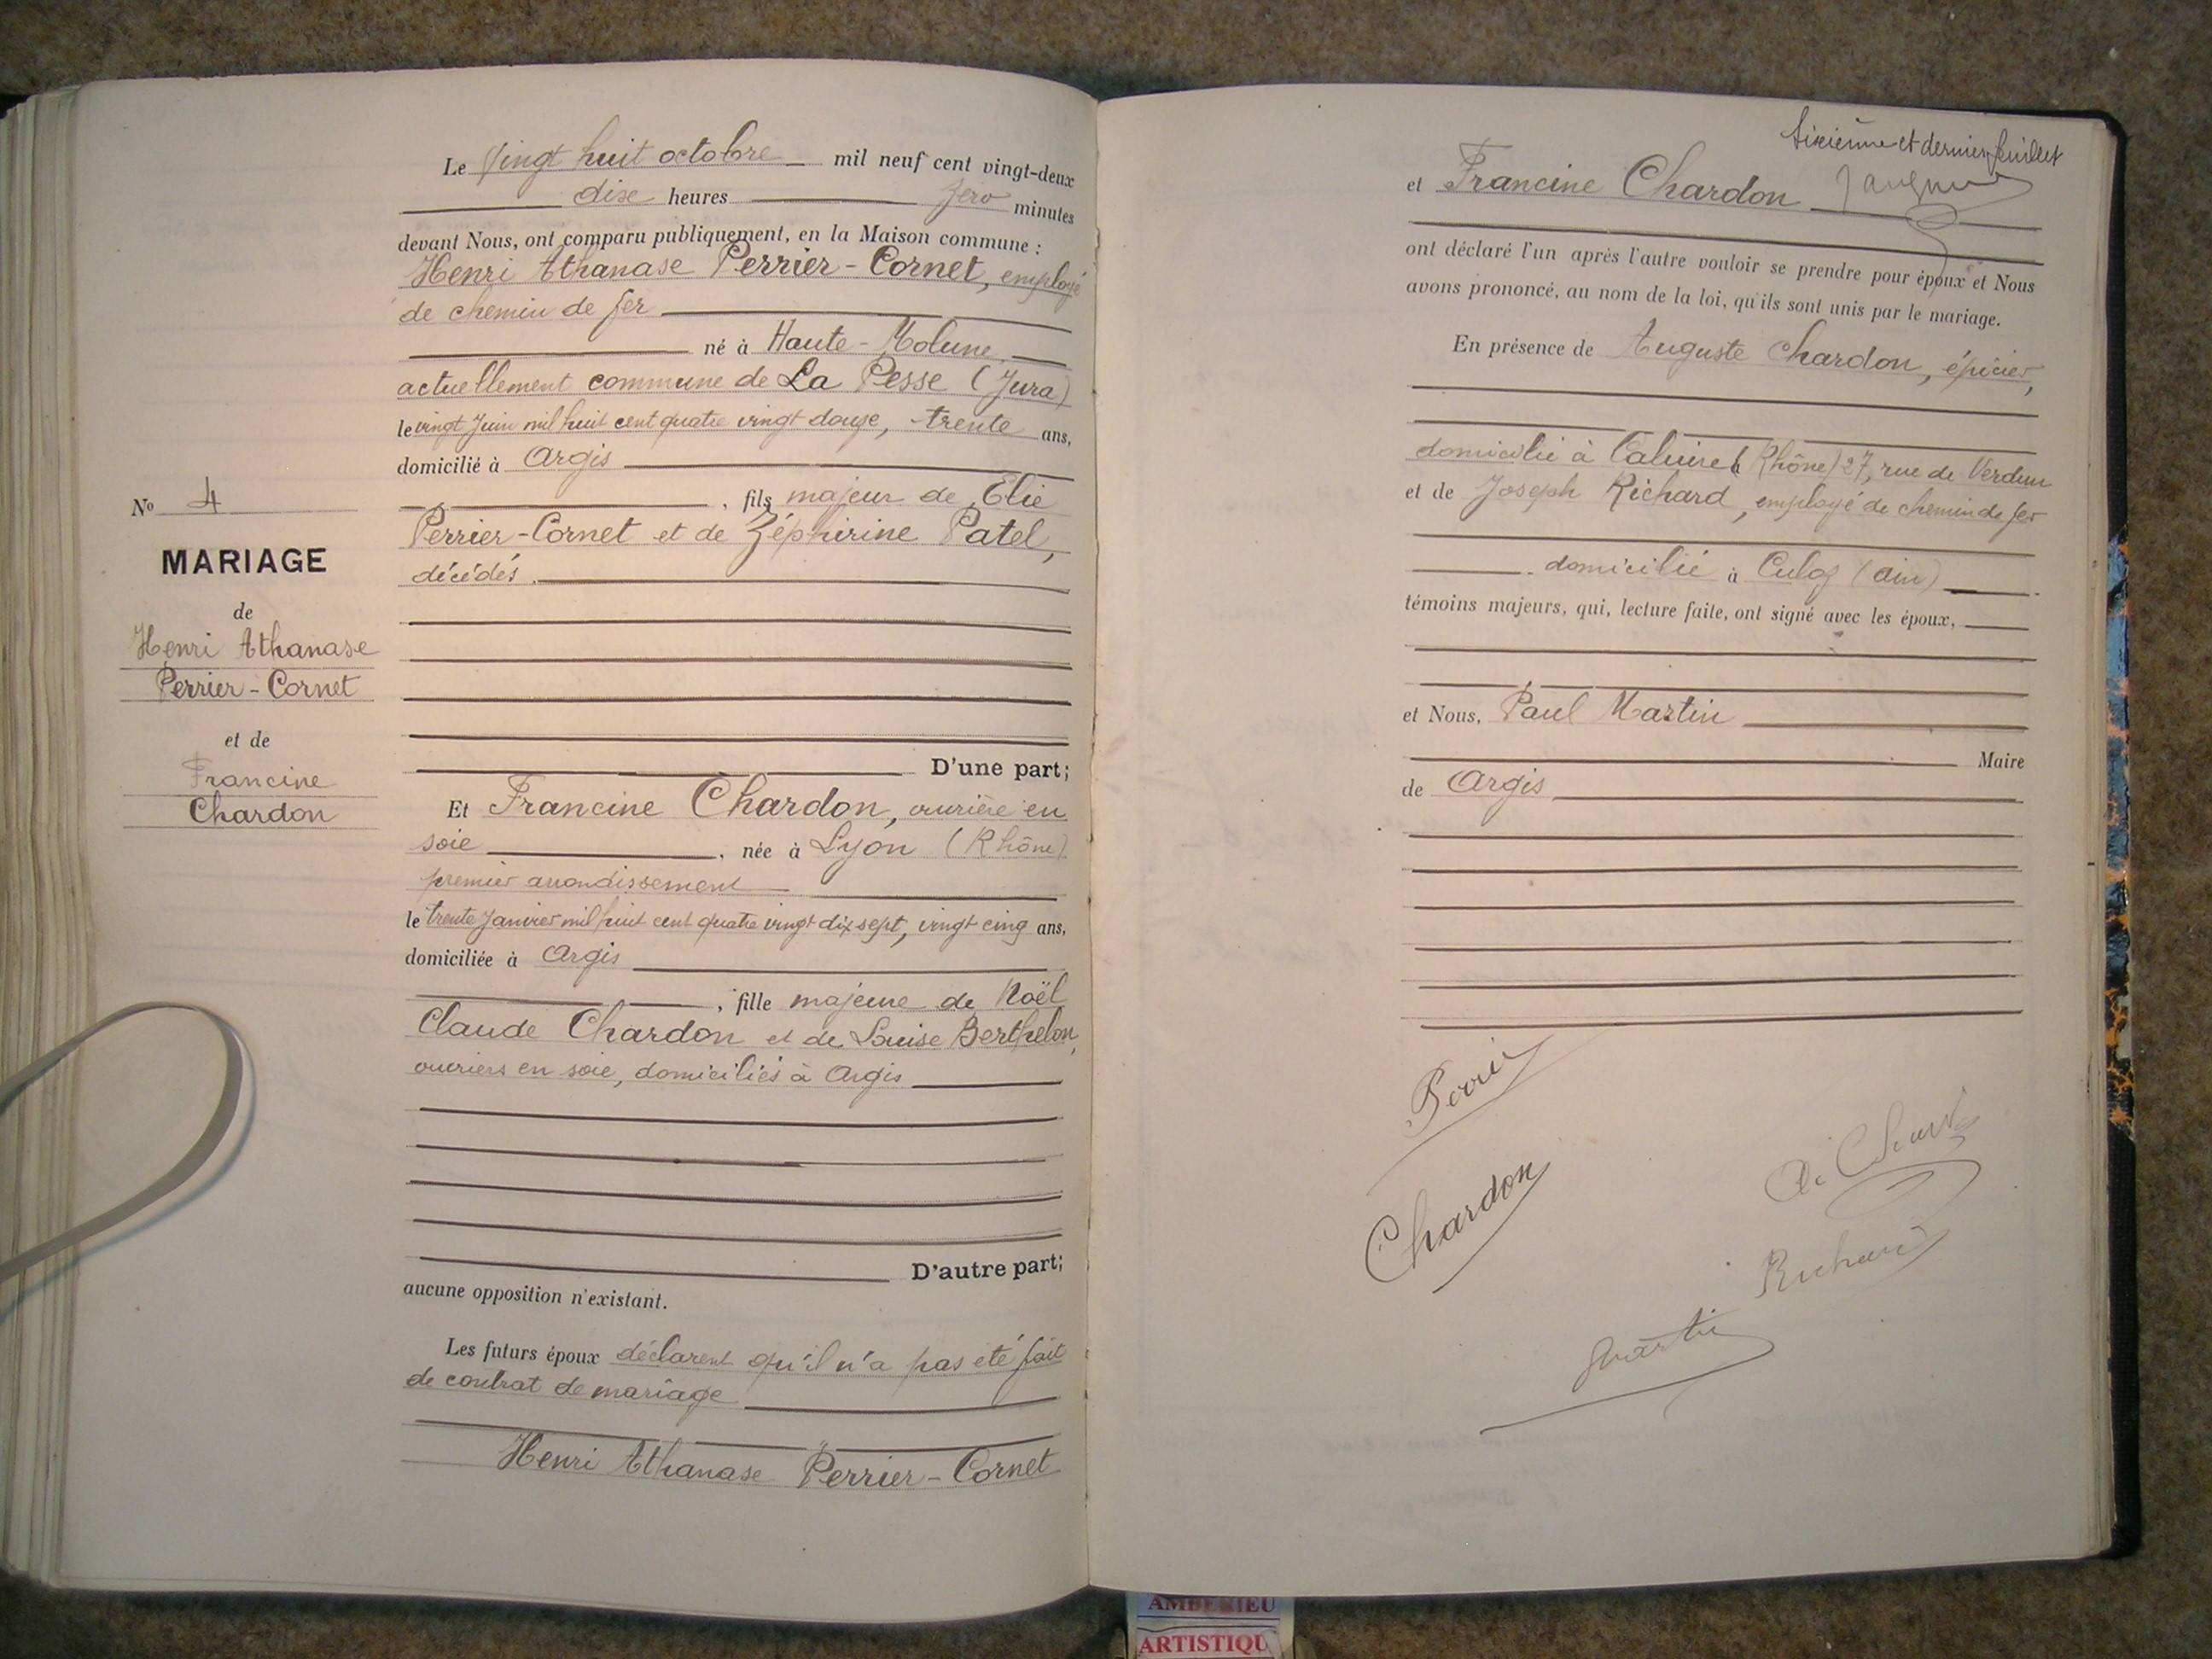 Le vingt huit octobre mil neuf cent vingt-deux
dix heures zéro minutes
devant Nous, ont comparu publiquement, en la Maison commune :
Henri Athanase Perrier-Cornet, employé
de chemin de fer
né à Haute-Molune,
actuellement commune de La Pesse (Jura)
le vingt Juin mil huit cent quatre vingt douze, trente ans,
domicilié à Argis
, fils majeur de Elie
Perrier-Cornet et de Zéphirine Patel,
décédés.
D'une part;
No 4
MARIAGE
de
Henri Athanase
Perrier-Cornet
et de
Francine
Chardon
Et Francine Chardon, ouvrière en
soie, née à Lyon (Rhône)
premier arrondissement
le trente Janvier mil huit cent quatre vingt dix sept, vingt cinq ans,
domiciliée à Argis
, fille majeure de Noël
Claude Chardon et de Louise Berthelon,
ouvriers en soie, domiciliés à Argis
D'autre part;
aucune opposition n'existant.
Les futurs époux déclarent qu'il n'a pas été fait
de contrat de mariage
Henri Athanase Perrier-Cornet
Sixième et dernier feuillet
et Francine Chardon
ont déclaré l'un après l'autre vouloir se prendre pour époux et Nous
avons prononcé, au nom de la loi, qu'ils sont unis par le mariage.
En présence de Auguste Chardon, épicier,
domicilié à Caluire (Rhône) 27, rue de Verdun
et de Joseph Richard, employé de chemin de fer
domicilié à Culoz (ain)
témoins majeurs, qui, lecture faite, ont signé avec les époux,
et Nous, Paul Martin
Maire
de Argis
Perrier
Chardon
Richard
Martin
AMBERIEU
ARTISTIQU